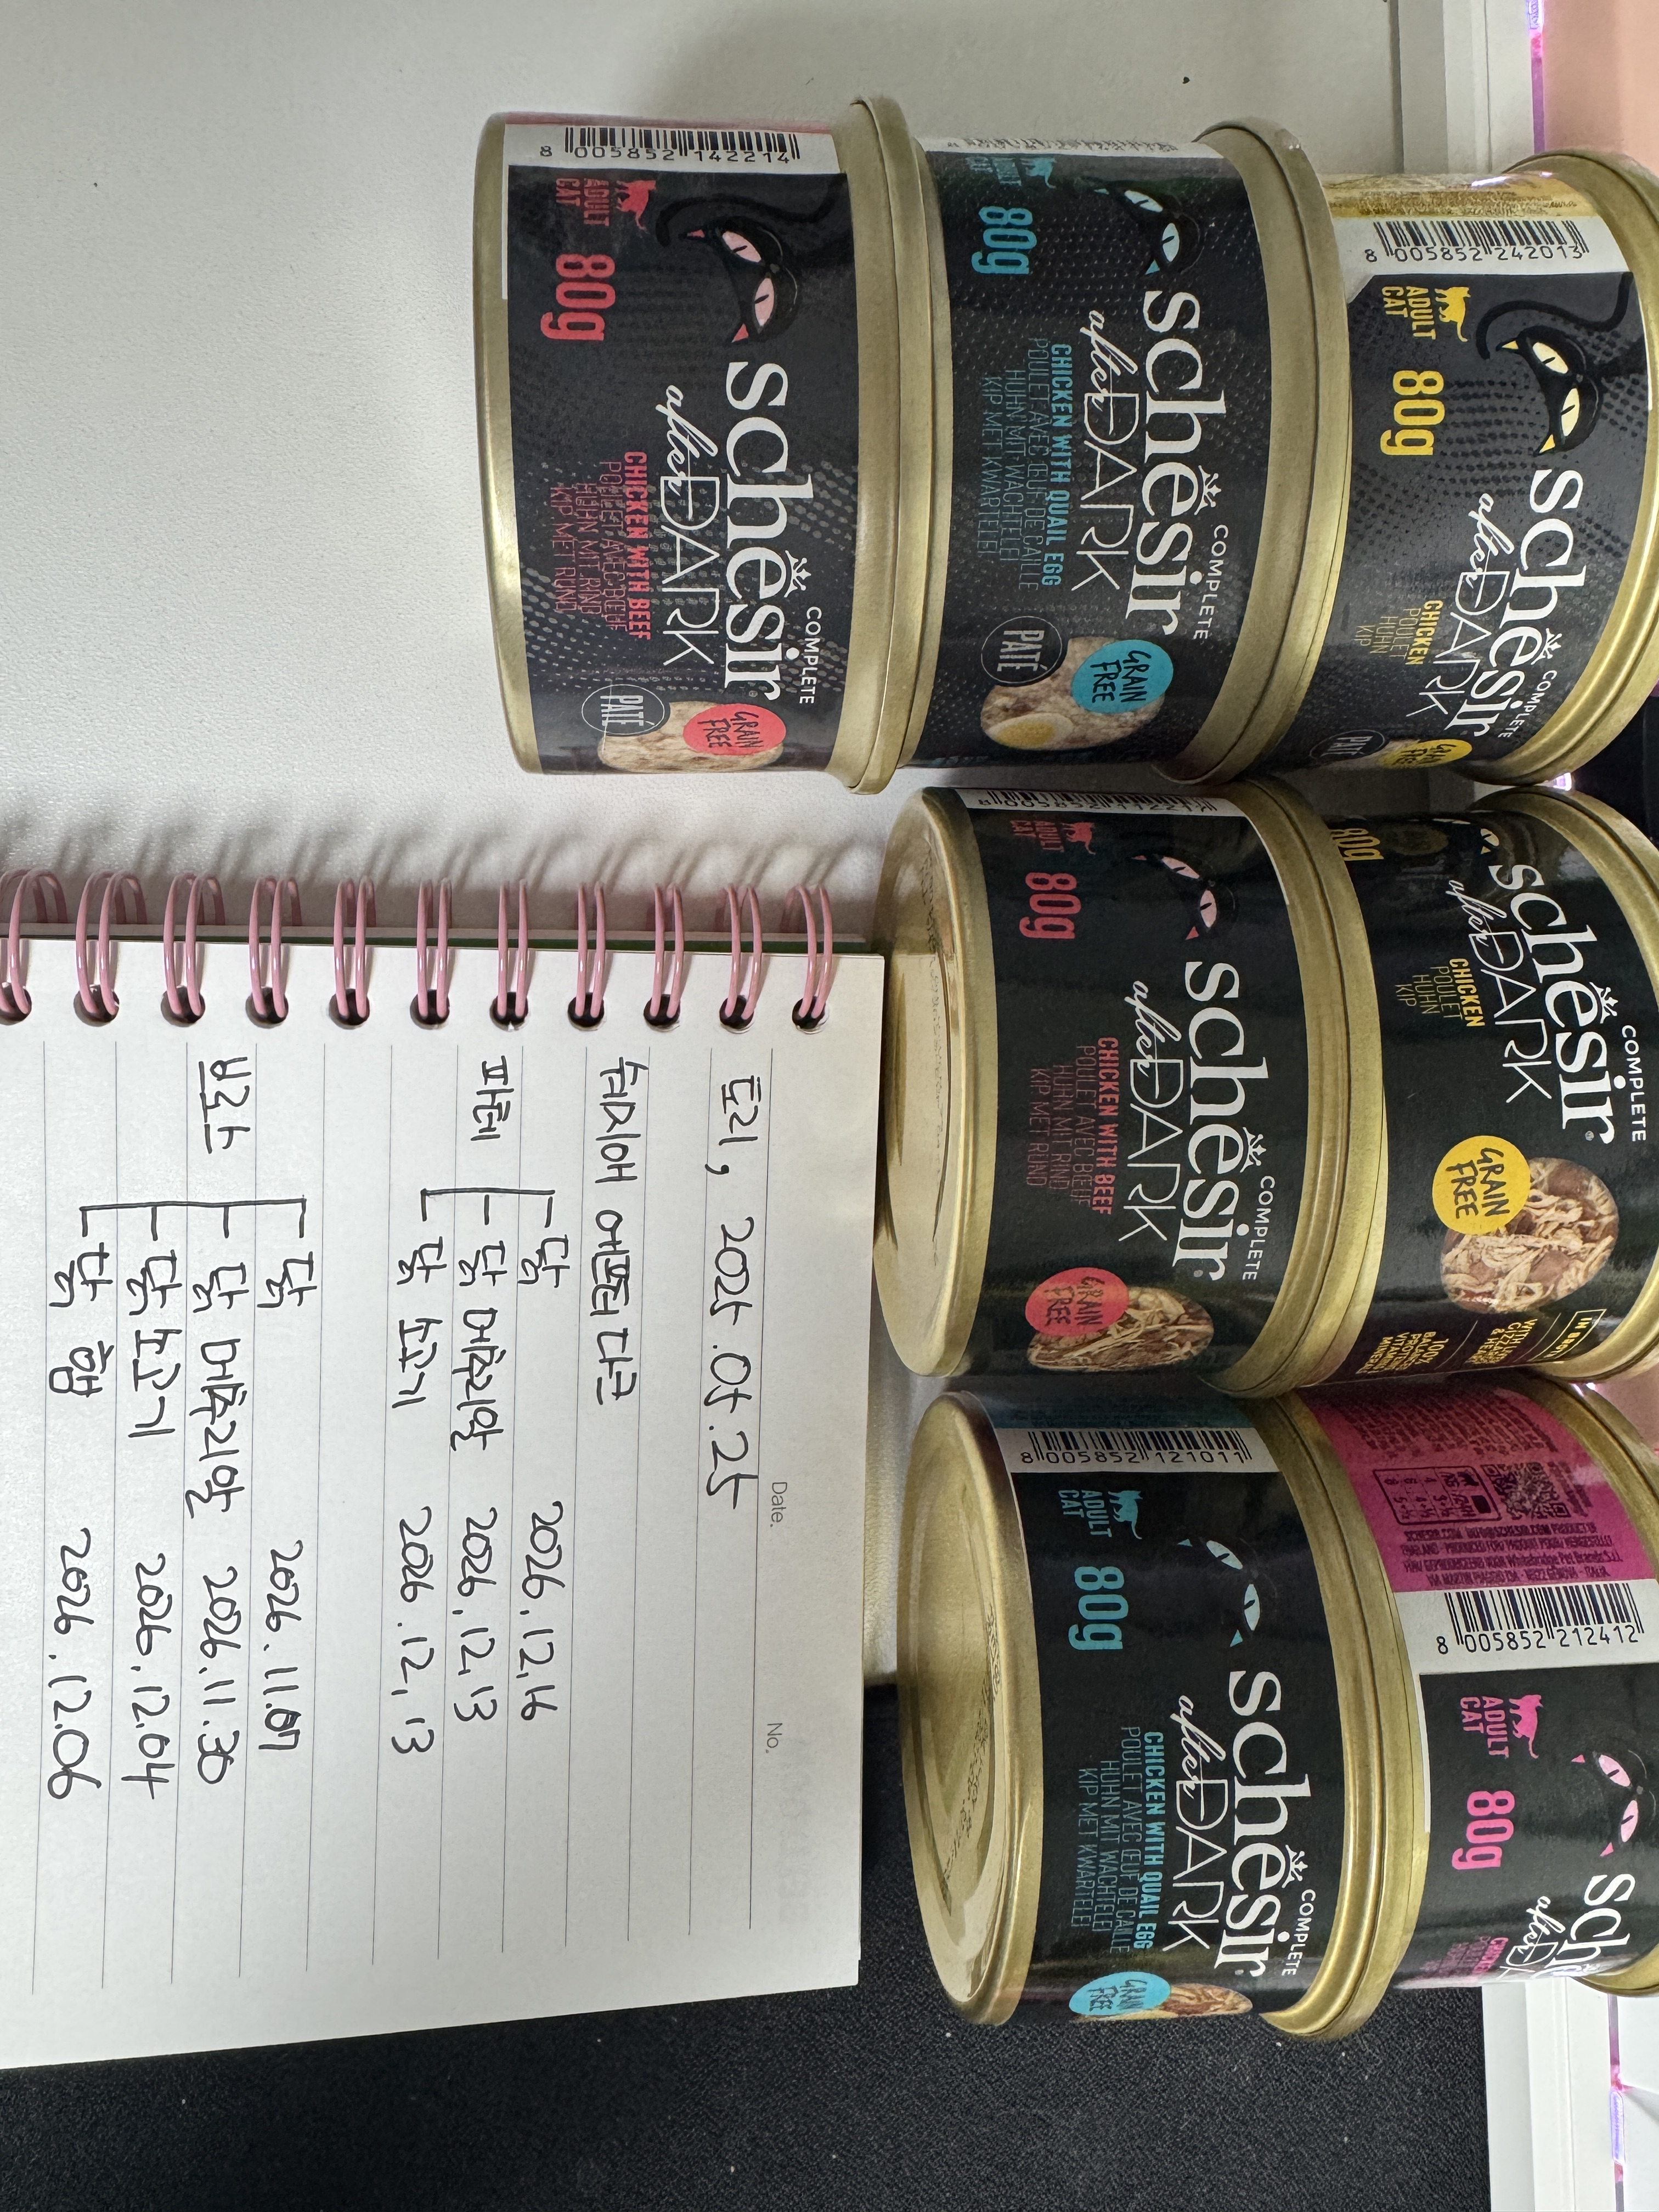 8 005852 242013
ADULT
CAT
80g
COMPLETE
schesir
after DARK
CHICKEN
POULET
HUHN
KIP
PATÉ
GRAIN
FREE
ADULT
CAT
80g
COMPLETE
schesir
after DARK
CHICKEN WITH QUAIL EGG
POULET AVEC ŒUF DE CAILLE
HUHN MIT WACHTELEI
KIP MET KWARTELEI
PATÉ
GRAIN
FREE
8 005852 142214
ADULT
CAT
80g
COMPLETE
schesir
after DARK
CHICKEN WITH BEEF
POULET AVEC BŒUF
HUHN MIT RIND
KIP MET RUND
PATÉ
GRAIN
FREE
80g
COMPLETE
schesir
after DARK
CHICKEN
POULET
HUHN
KIP
GRAIN
FREE
ADULT
CAT
80g
COMPLETE
schesir
after DARK
CHICKEN WITH BEEF
POULET AVEC BŒUF
HUHN MIT RIND
KIP MET RUND
GRAIN
FREE
8 005852 212412
ADULT
CAT
80g
8 005852 121011
ADULT
CAT
80g
COMPLETE
schesir
after DARK
CHICKEN WITH QUAIL EGG
POULET AVEC ŒUF DE CAILLE
HUHN MIT WACHTELEI
KIP MET KWARTELEI
GRAIN
FREE
Date. No.
토리, 2025.05.25
쉬지어 애프터 다크
파테 닭 2026.12.16
닭 메추리알 2026.12.13
닭 소고기 2026.12.13
브로스 닭 2026.11.07
닭 메추리알 2026.11.30
닭 소고기 2026.12.04
닭 햄 2026.12.06